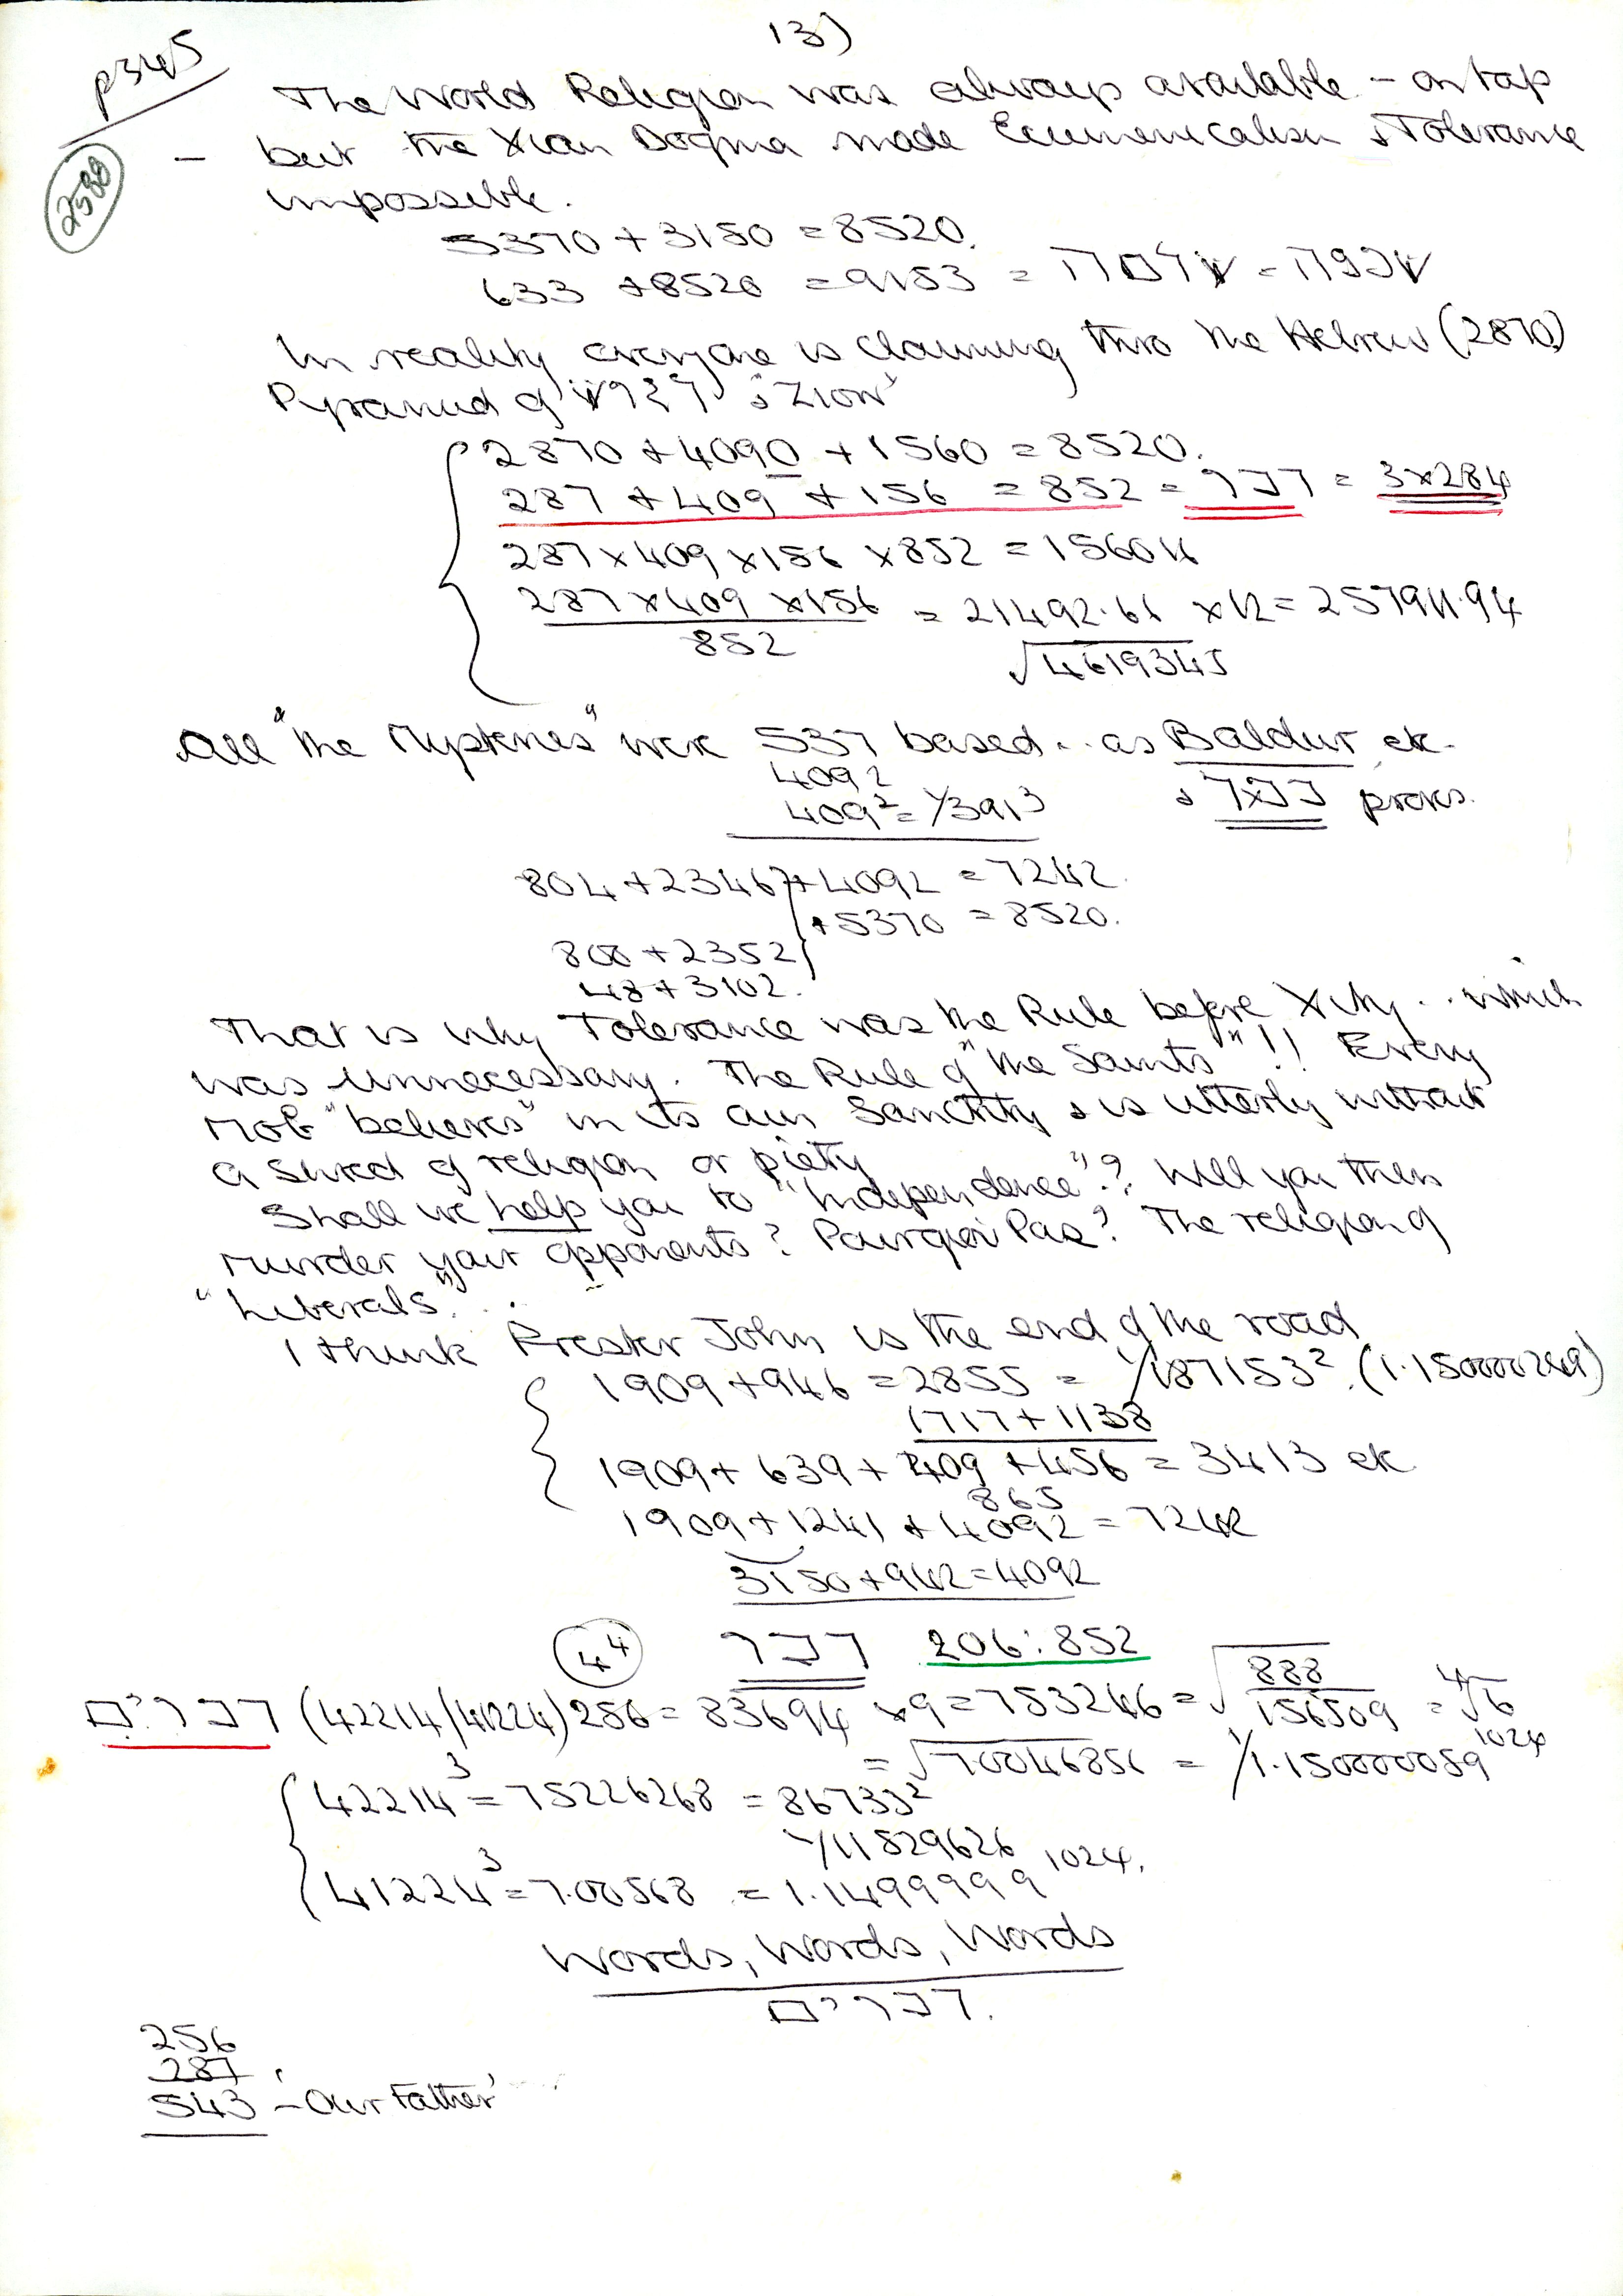 13)
p345
2588
The World Religion was always available - on tap
- but the Xian Dogma made Ecumenicalism & Tolerance
impossible.
5370 + 3150 = 8520.
633 + 8520 = 9153 =
In reality everyone is claiming thro the Hebrew (2870)
Pyramid of & 'Zion'
2870 + 4090 + 1560 = 8520.
287 + 409 + 156 = 852 = דבר = 3x284
287 x 409 x 156 x 852 = 156011
287 x 409 x 156 = 21492.61 x 12 = 257911.94
852
√4619345
All "the Mysteries" were 537 based .. as Baldur etc.
4092
409² = 1/391³
& proves.
804 + 2346 + 4092 = 7242.
+ 5370 = 8520.
800 + 2352
48 + 3102.
That is why Tolerance was the Rule before Xity .. which
was unnecessary. The Rule of "the Saints"!! Every
Mob "believes" in its own Sanctity & is utterly without
a shred of religion or piety
Shall we help you to "Independence"? Will you then
murder your opponents? Pourquoi Pas? The religion of
"Liberals". . .
I think Prester John is the end of the road
1909 + 946 = 2855 = 1/187153². (1.150000249)
1717 + 1138
1909 + 639 + 409 + 456 = 3413 etc
865
1909 + 1241 + 4092 = 7242
3150 + 942 = 4092
4⁴ דבר 206:852
דברים (42214/41224) 256 = 83694 x 9 = 753246 = √888/156509 = ⁴√6
= √70046856 = 1/1.150000059¹⁰²⁴
42214³ = 75226268 = 86733²
1/11829626
41224³ = 7.00568 = 1.1499999¹⁰²⁴.
Words, Words, Words
דברים.
256
287
543 - 'Our Father'